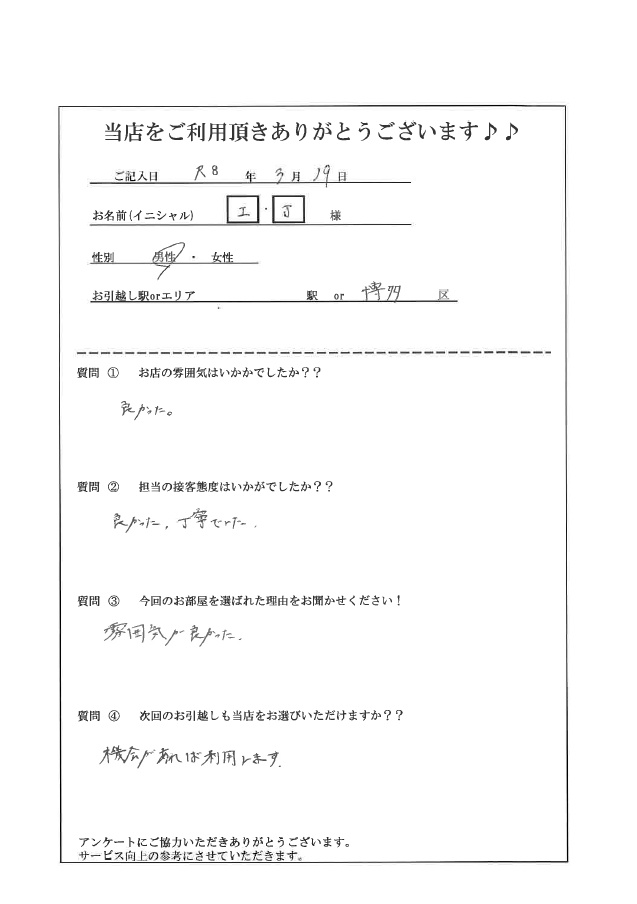 当店をご利用頂きありがとうございます♪♪
ご記入日 R8 年 3 月 19 日
お名前(イニシャル) エ ・ J 様
性別 男性 ・ 女性
お引越し駅orエリア 駅 or 博多 区
質問 ① お店の雰囲気はいかかでしたか？？
良かった。
質問 ② 担当の接客態度はいかがでしたか？？
良かった, 丁寧でした.
質問 ③ 今回のお部屋を選ばれた理由をお聞かせください！
雰囲気が良かった.
質問 ④ 次回のお引越しも当店をお選びいただけますか？？
機会があれば利用します.
アンケートにご協力いただきありがとうございます。
サービス向上の参考にさせていただきます。